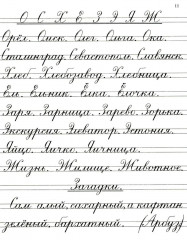 О С Х Е З Э Я Ж
Орёл. Омск. Олег. Ольга. Ока.
Сталинград. Севастополь. Славянск.
Хлеб. Хлебозавод. Хлебница.
Ель. Ельник. Ёлка. Ёлочка.
Заря. Зарница. Зарево. Зорька.
Экскурсия. Элеватор. Эстония.
Яйцо. Яичко. Яичница.
Жизнь. Жилище. Животное.
Загадки.
Сам алый, сахарный, а кафтан
зелёный, бархатный. (Арбуз)